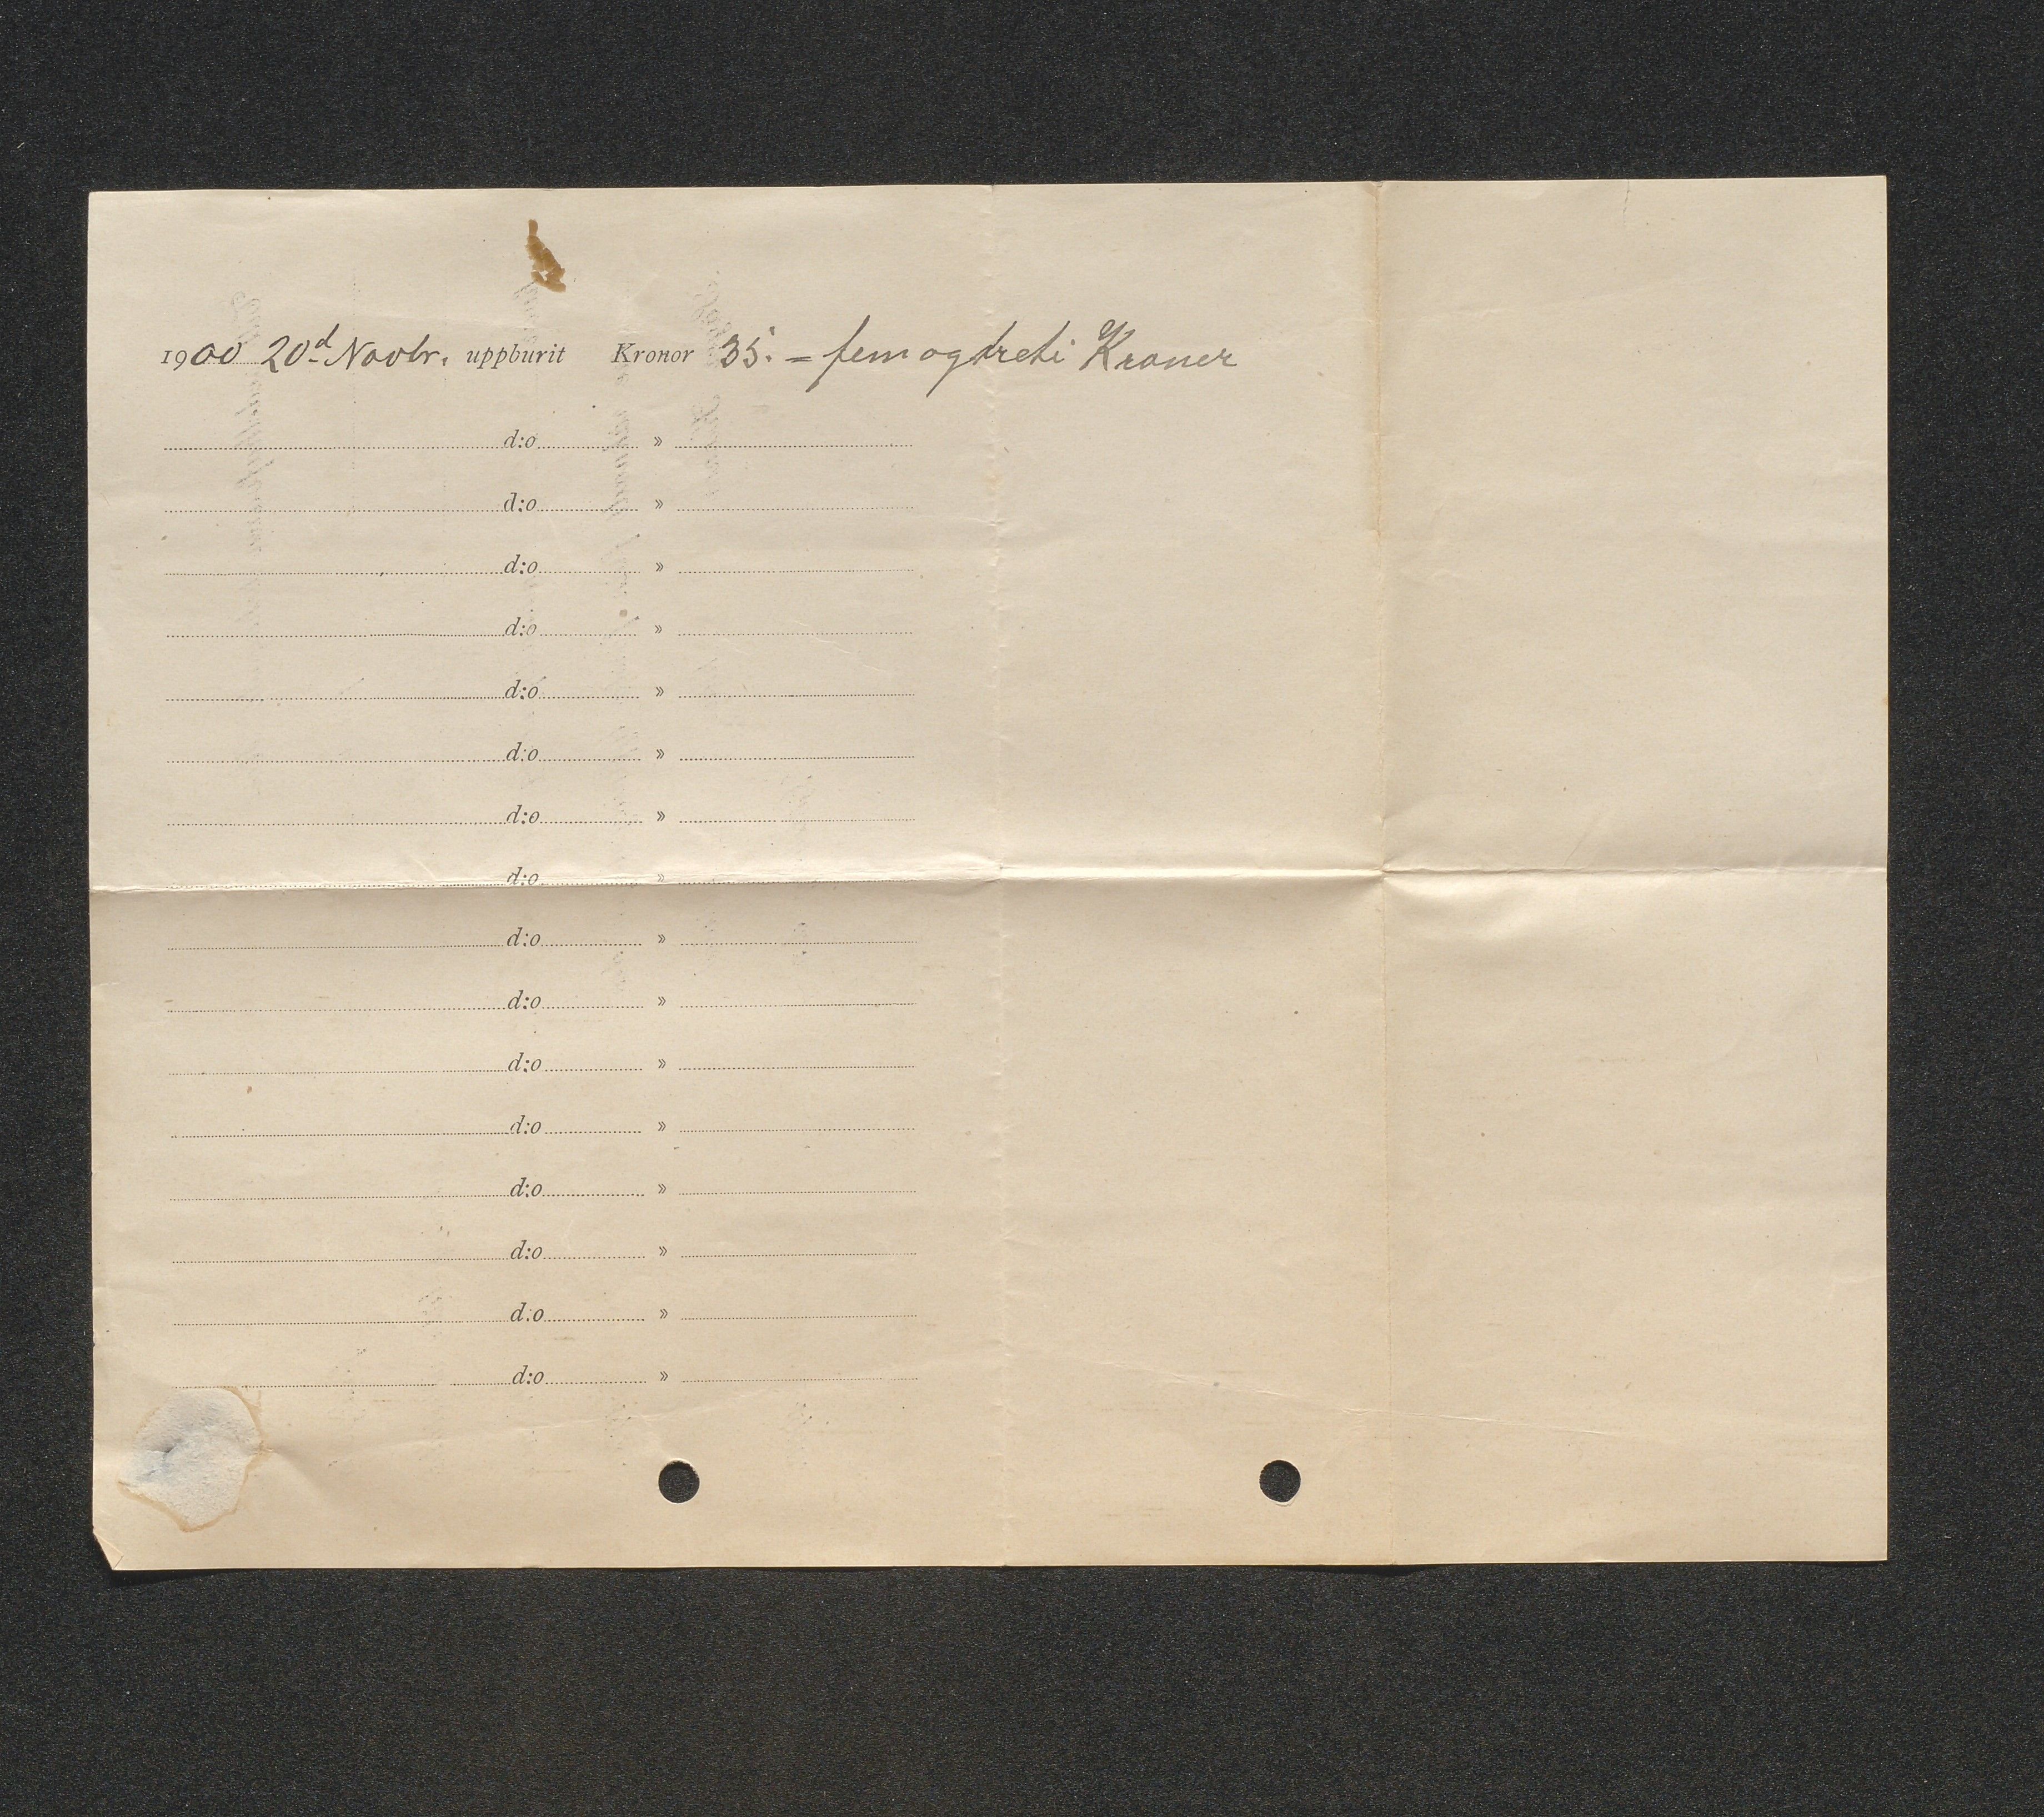 1900 20d Novbr. uppburit Kronor 35. = fem og treti Kroner
d:o »
d:o »
d:o »
d:o »
d:o »
d:o »
d:o »
d:o »
d:o »
d:o »
d:o »
d:o »
d:o »
d:o »
d:o »
d:o »